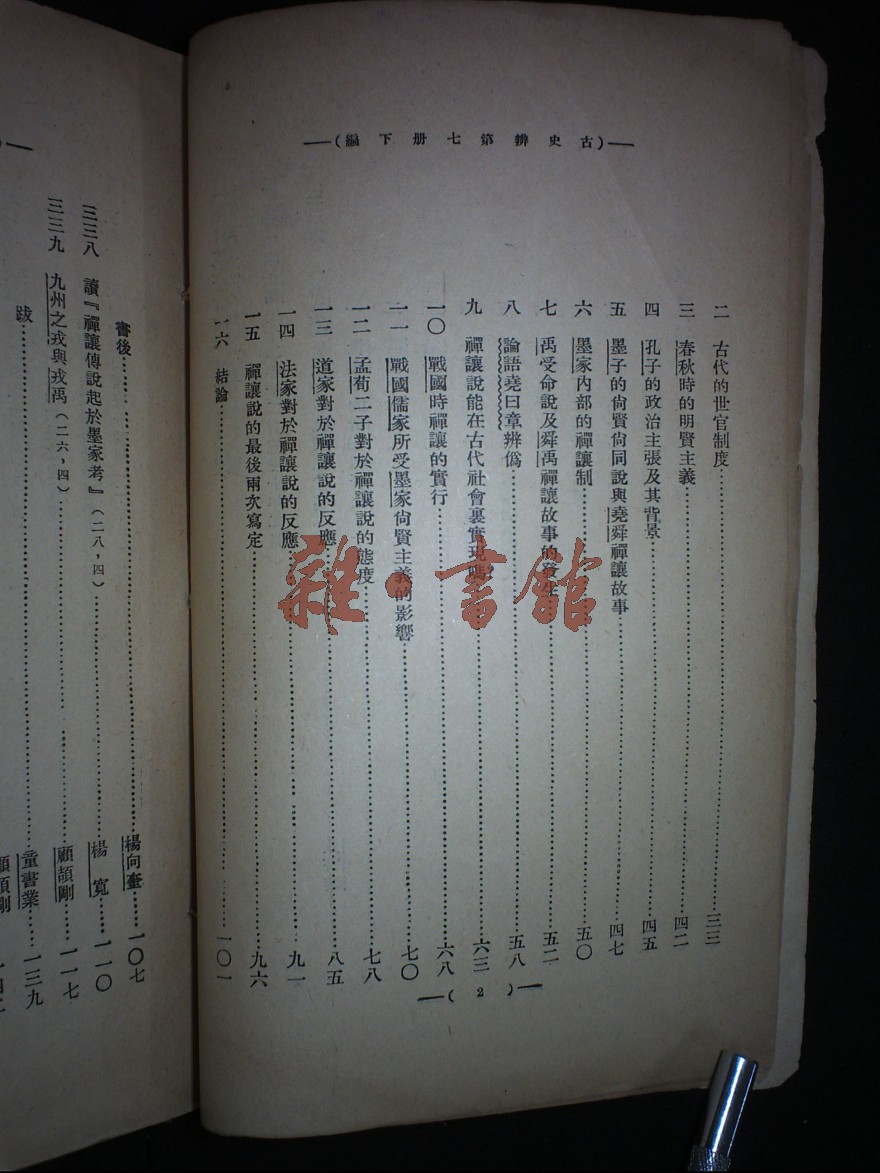 —(古史辨第七册下編)—
二　古代的世官制度……三三
三　春秋時的明賢主義……四二
四　孔子的政治主張及其背景……四五
五　墨子的尙賢尙同說與堯舜禪讓故事……四七
六　墨家內部的禪讓制……五〇
七　禹受命說及舜禹禪讓故事的發生……五二
八　論語堯曰章辨僞……五八
九　禪讓說能在古代社會裏實現嗎……六三
一〇　戰國時禪讓的實行……六八
一一　戰國儒家所受墨家尙賢主義的影響……七〇
一二　孟荀二子對於禪讓說的態度……七八
一三　道家對於禪讓說的反應……八五
一四　法家對於禪讓說的反應……九一
一五　禪讓說的最後兩次寫定……九六
一六　結論……一〇一
—( 2 )—
書後……楊向奎……一〇七
三三八　讀『禪讓傳說起於墨家考』(二八，四)……楊寬……一一〇
三三九　九州之戎與戎禹(二六，四)……顧頡剛……一一七
跋……童書業……一三九
顧頡剛
雜·書館